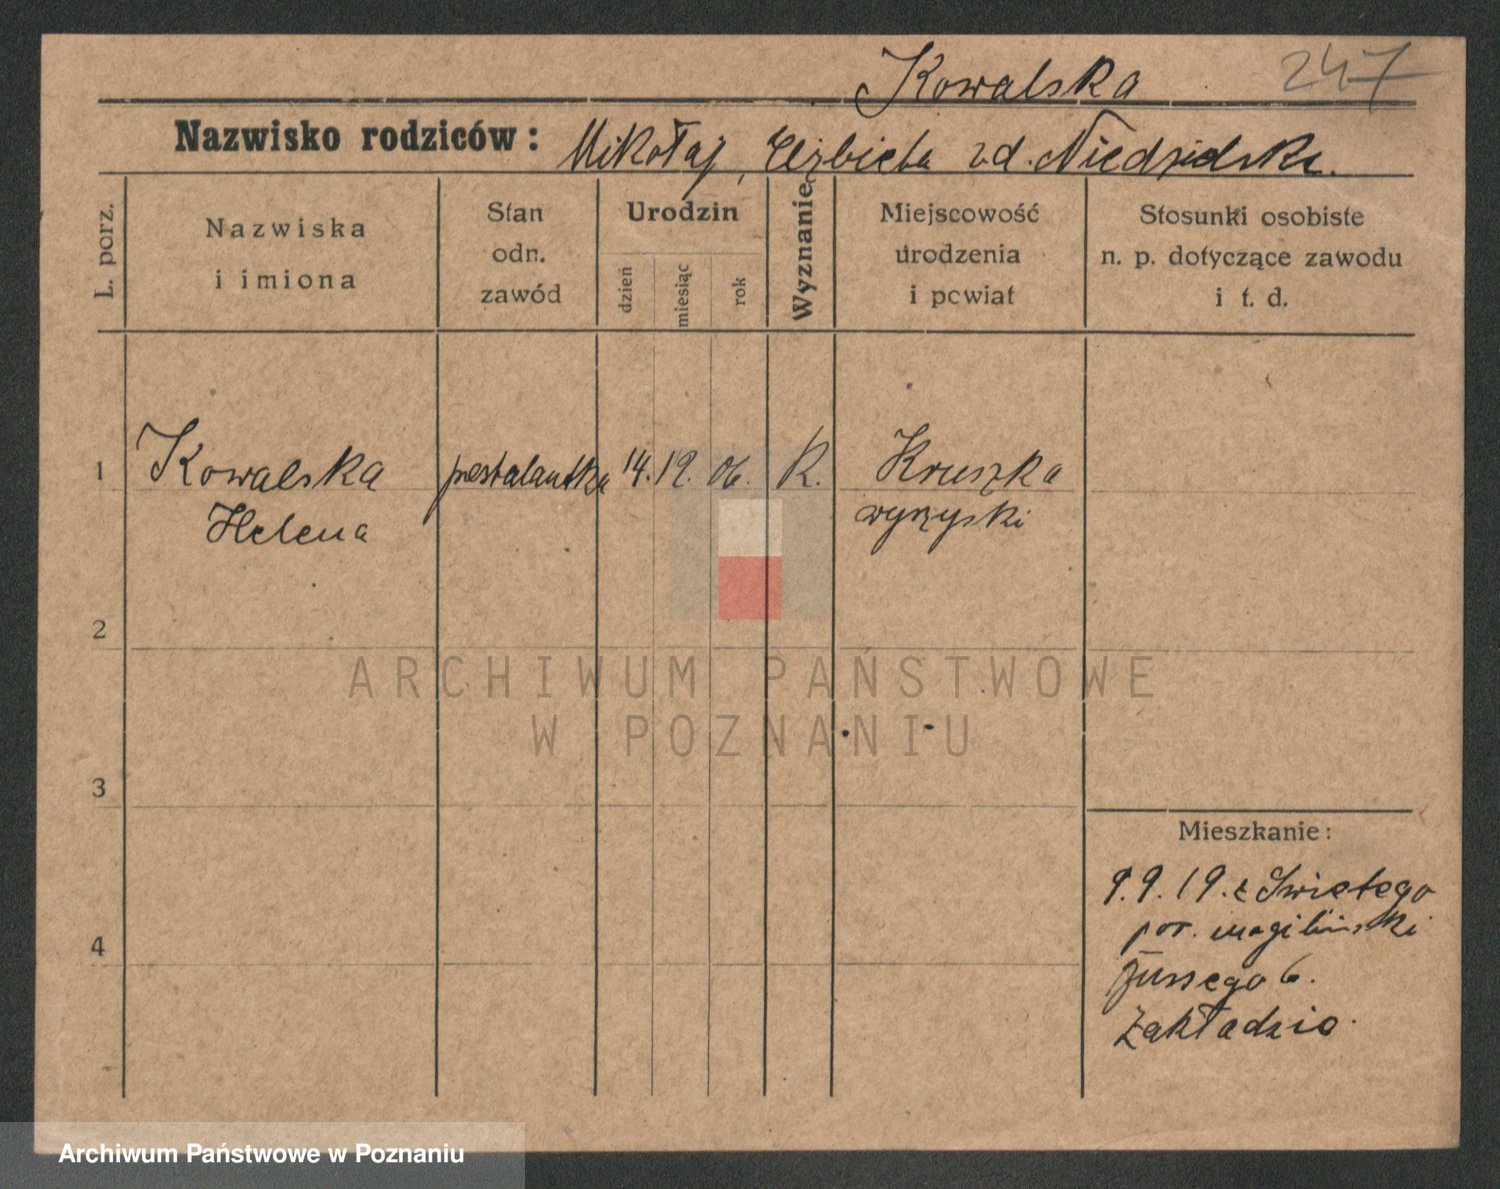 Kowalska 247
Nazwisko rodziców: Mikołaj, Elżbieta zd. Niedzielska.
L. porz.
Nazwiska
i imiona
Stan
odn.
zawód
Urodzin
dzień
miesiąc
rok
Wyznanie
Miejscowość
urodzenia
i powiat
Stosunki osobiste
n. p. dotyczące zawodu
i t. d.
1 Kowalska 14. 12. 06. K. Kruszka
Helena wyrzyski
2
3
4
Mieszkanie:
9.9.19. z Świętego
pow. mogilński
6.
Zakładzie.
ARCHIWUM PAŃSTWOWE
W POZNANIU
Archiwum Państwowe w Poznaniu